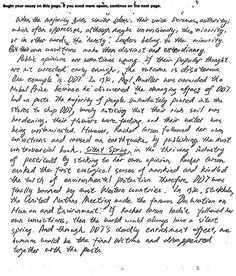 Begin your essay on this page. If you need more space, continue on the next page.
When the majority holds similar ideas, their voice becomes authority,
which often oppresses, although maybe unconsciously, the minority,
or in other words, the "heresy". Leaders belong to the minority.
their own convictions make them distinct and extraordinary.
Public opinions are sometimes wrong. If their popular thought
are not corrected early enough, the outcome is disastrous.
One example is DDT. In 1942, Paul Mueller was awarded the
Nobel Prize because he discovered the changing effects of DDT
had on pests. The majority of people immediately poured into the
stores to shop DDT, barely noticing that their rich soil was
hardening, their flowers were fading, and their water was
being contaminated. However, Rachel Carson followed her own
convictions and caused an earthquake, by publishing the most
controversial book, Silent Spring, in the thriving industry
of pesticides. By sticking to her own opinion, Rachel Carson
ended the first ecological crises of mankind and kindled
the torch of environmental protection. Therefore, DDT was
finally banned by most Western countries. In 1972, Stockholm,
the United Nations Meeting made the famous "Declaration on
Human and Environment". If Rachel Carson hadn't followed her
own convictions, then the world would always have a silent
spring. And through DDT's deadly enrichment effect, we
humans would be the final victims and disappeared
together with the pests.